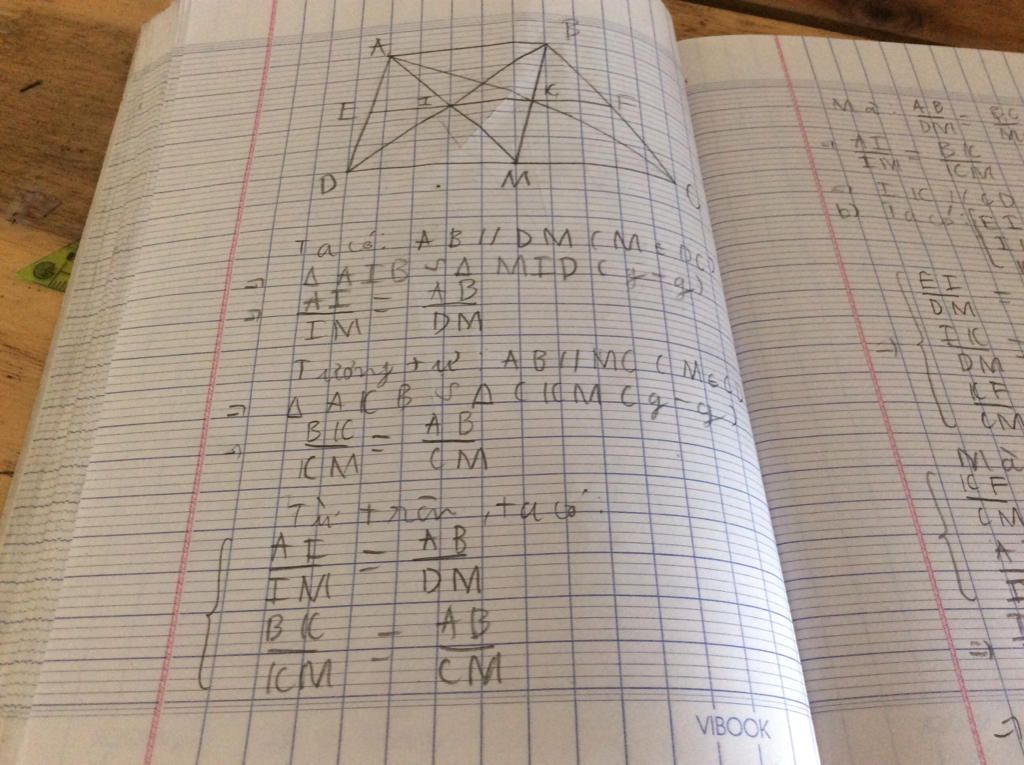 A
B
E
I
K
F
D
M
C
Ta có: AB // DM (M ∈ DC)
=> Δ AIB ∽ Δ MID (g-g)
=> AI/IM = AB/DM
Tương tự: AB // MC (M ∈
=> Δ AKB ∽ Δ CKM (g-g)
=> BK/KM = AB/CM
Từ trên, ta có:
{ AI/IM = AB/DM
BK/KM = AB/CM
VIBOOK
Mà: AB/DM =
=> AI/IM = BK/KM
=> IK //
b) Ta có: { EI
=> { EI/DM =
IK/DM
KF/CM
Mà
{ KF/CM
=>
=>